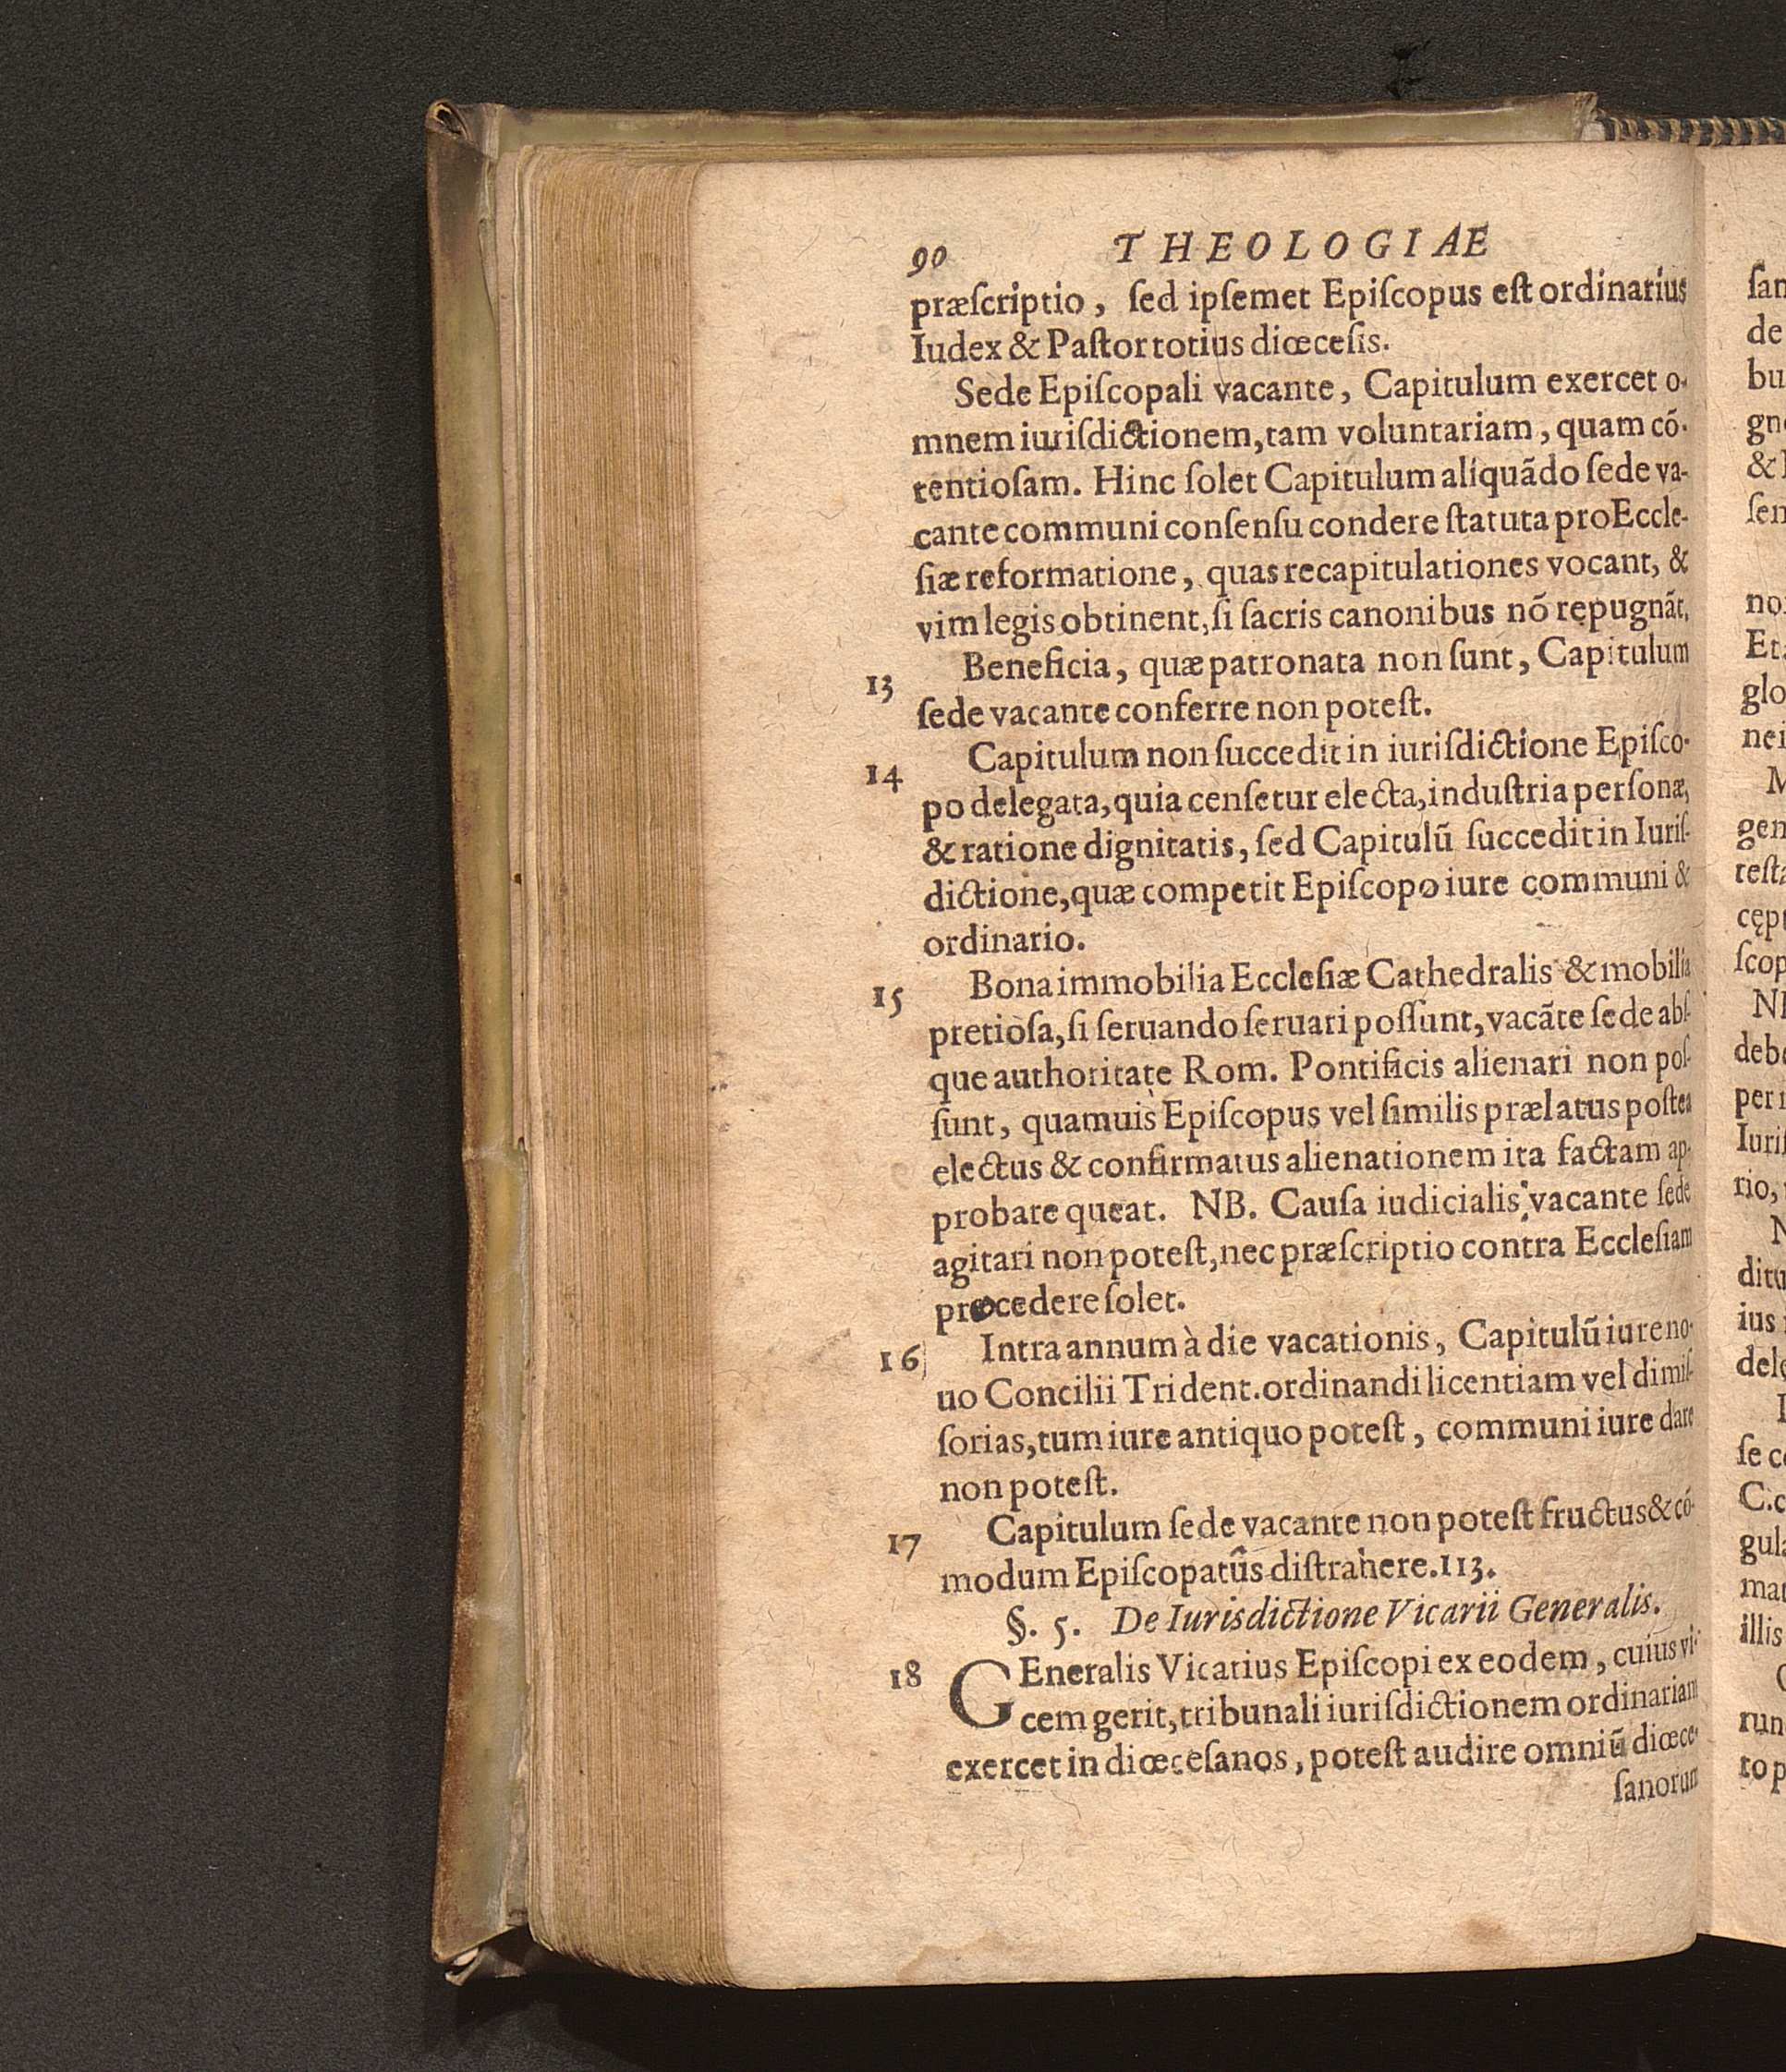 90 THEOLOGIAE
præſcriptio, ſed ipſemet Epiſcopus eſt ordinarius
Iudex & Paſtor totius diœceſis.
Sede Epiſcopali vacante, Capitulum exercet o-
mnem iuriſdictionem, tam voluntariam, quam cõ-
tentioſam. Hinc ſolet Capitulum aliquãdo ſede va-
cante communi conſenſu condere ſtatuta pro Eccle-
ſiæ reformatione, quas recapitulationes vocant, &
vim legis obtinent, ſi ſacris canonibus nõ repugnãt,
13 Beneficia, quæ patronata non ſunt, Capitulum
ſede vacante conferre non poteſt.
14 Capitulum non ſuccedit in iuriſdictione Epiſco-
po delegata, quia cenſetur electa, induſtria perſonæ,
& ratione dignitatis, ſed Capitulũ ſuccedit in Iuriſ-
dictione, quæ competit Epiſcopo iure communi &
ordinario.
15 Bona immobilia Eccleſiæ Cathedralis & mobilia
pretioſa, ſi ſeruando ſeruari poſſunt, vacãte ſede abſ-
que authoritate Rom. Pontificis alienari non poſ-
ſunt, quamuis Epiſcopus vel ſimilis prælatus poſtea
electus & confirmatus alienationem ita factam ap-
probare queat. NB. Cauſa iudicialis vacante ſede
agitari non poteſt, nec præſcriptio contra Eccleſiam
procedere ſolet.
16 Intra annum à die vacationis, Capitulũ iure no-
uo Concilii Trident. ordinandi licentiam vel dimiſ-
ſorias, tum iure antiquo poteſt, communi iure dare
non poteſt.
17 Capitulum ſede vacante non poteſt fructus & cõ-
modum Epiſcopatûs diſtrahere. 113.
§. 5. De Iurisdictione Vicarii Generalis.
18 GEneralis Vicarius Epiſcopi ex eodem, cuius vi-
cem gerit, tribunali iuriſdictionem ordinariam
exercet in diœceſanos, poteſt audire omniũ diœce-
ſanorum